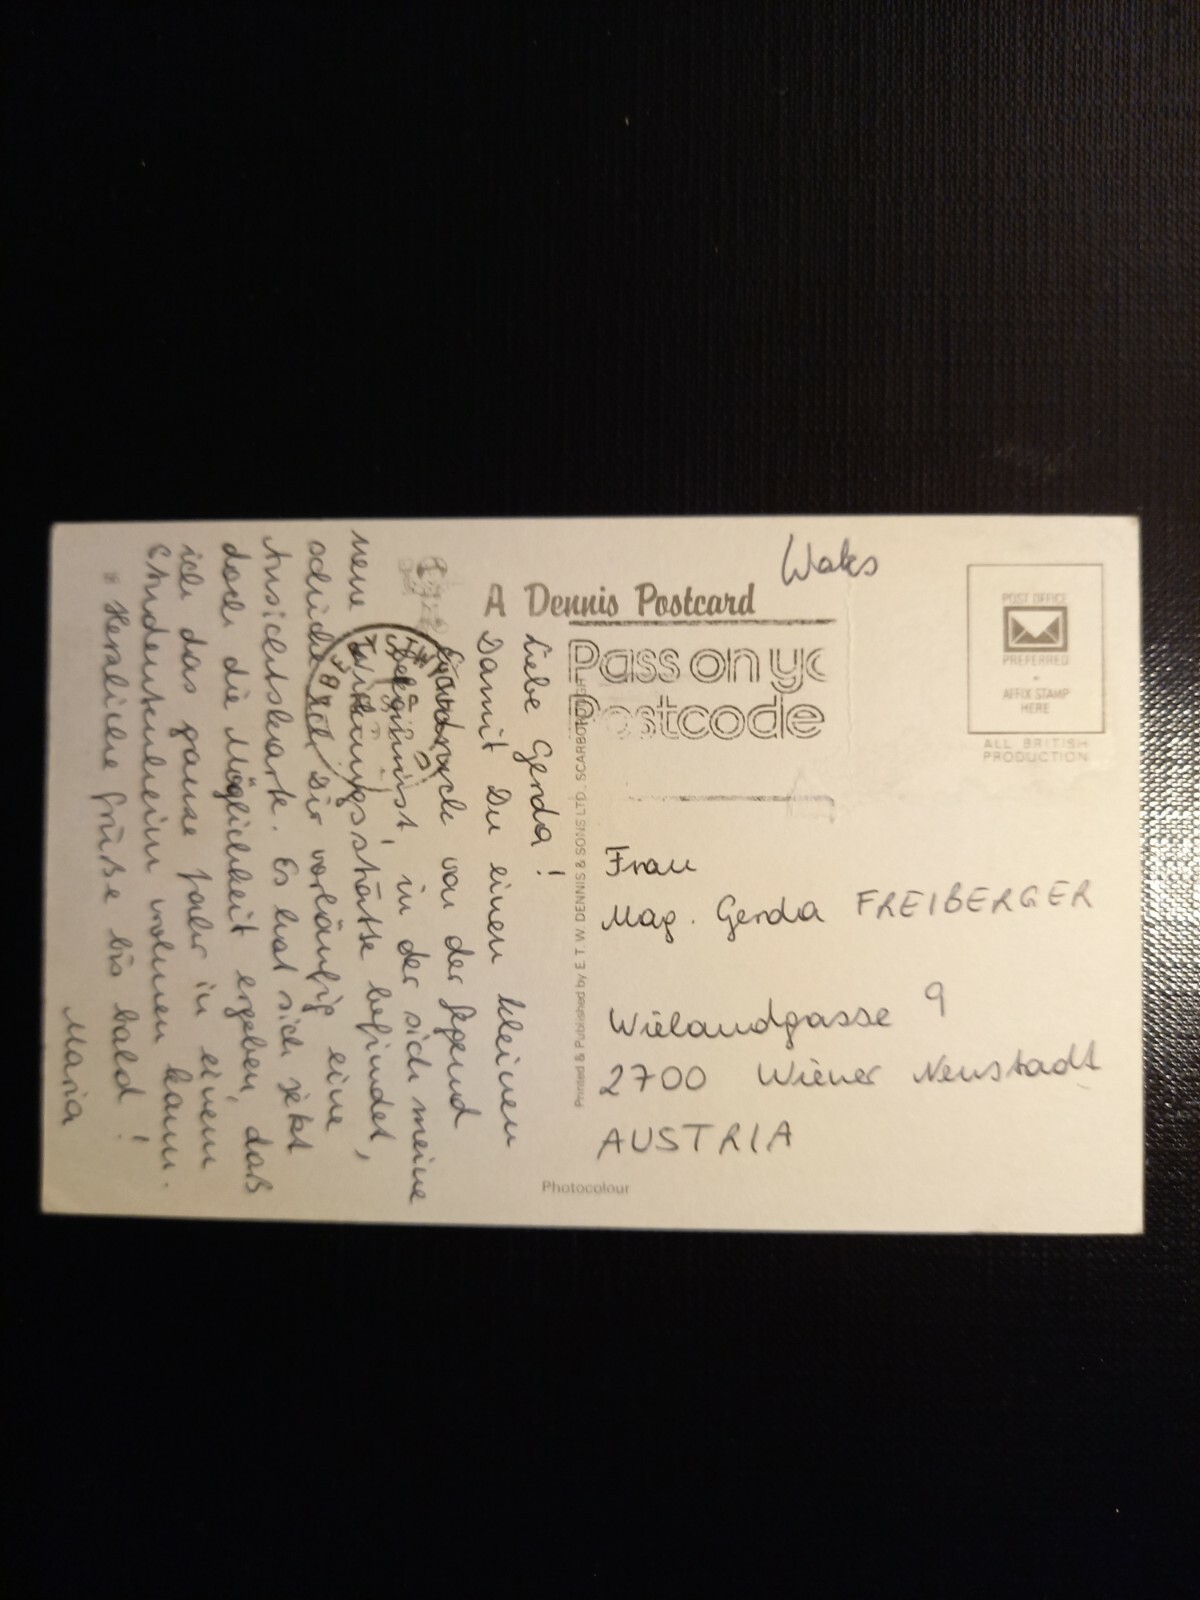 Wales
A Dennis Postcard
Pass on yo
Postcode
POST OFFICE
PREFERRED
AFFIX STAMP
HERE
ALL BRITISH
PRODUCTION
Liebe Gerda!
Damit Du einen kleinen
Eindruck von der Gegend
bekommst, in der sich meine
neue Wirkungsstätte befindet,
schicke ich Dir vorläufig eine
Ansichtskarte. Es hat sich jetzt
doch die Möglichkeit ergeben, daß
ich das ganze Jahr in einem
Studentenheim wohnen kann.
Herzliche Grüße bis bald!
Maria
Printed & Published by E. T. W. DENNIS & SONS LTD., SCARBOROUGH
Frau
Mag. Gerda FREIBERGER
Wielandgasse 9
2700 Wiener Neustadt
AUSTRIA
Photocolour